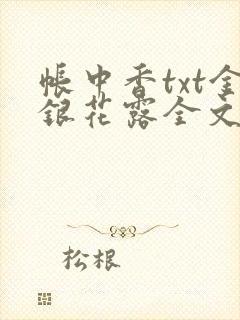 帐中香txt金
银花露全文
松根